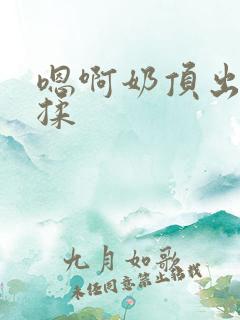 嗯啊奶頂出
揉
九月如歌
未经同意禁止转载